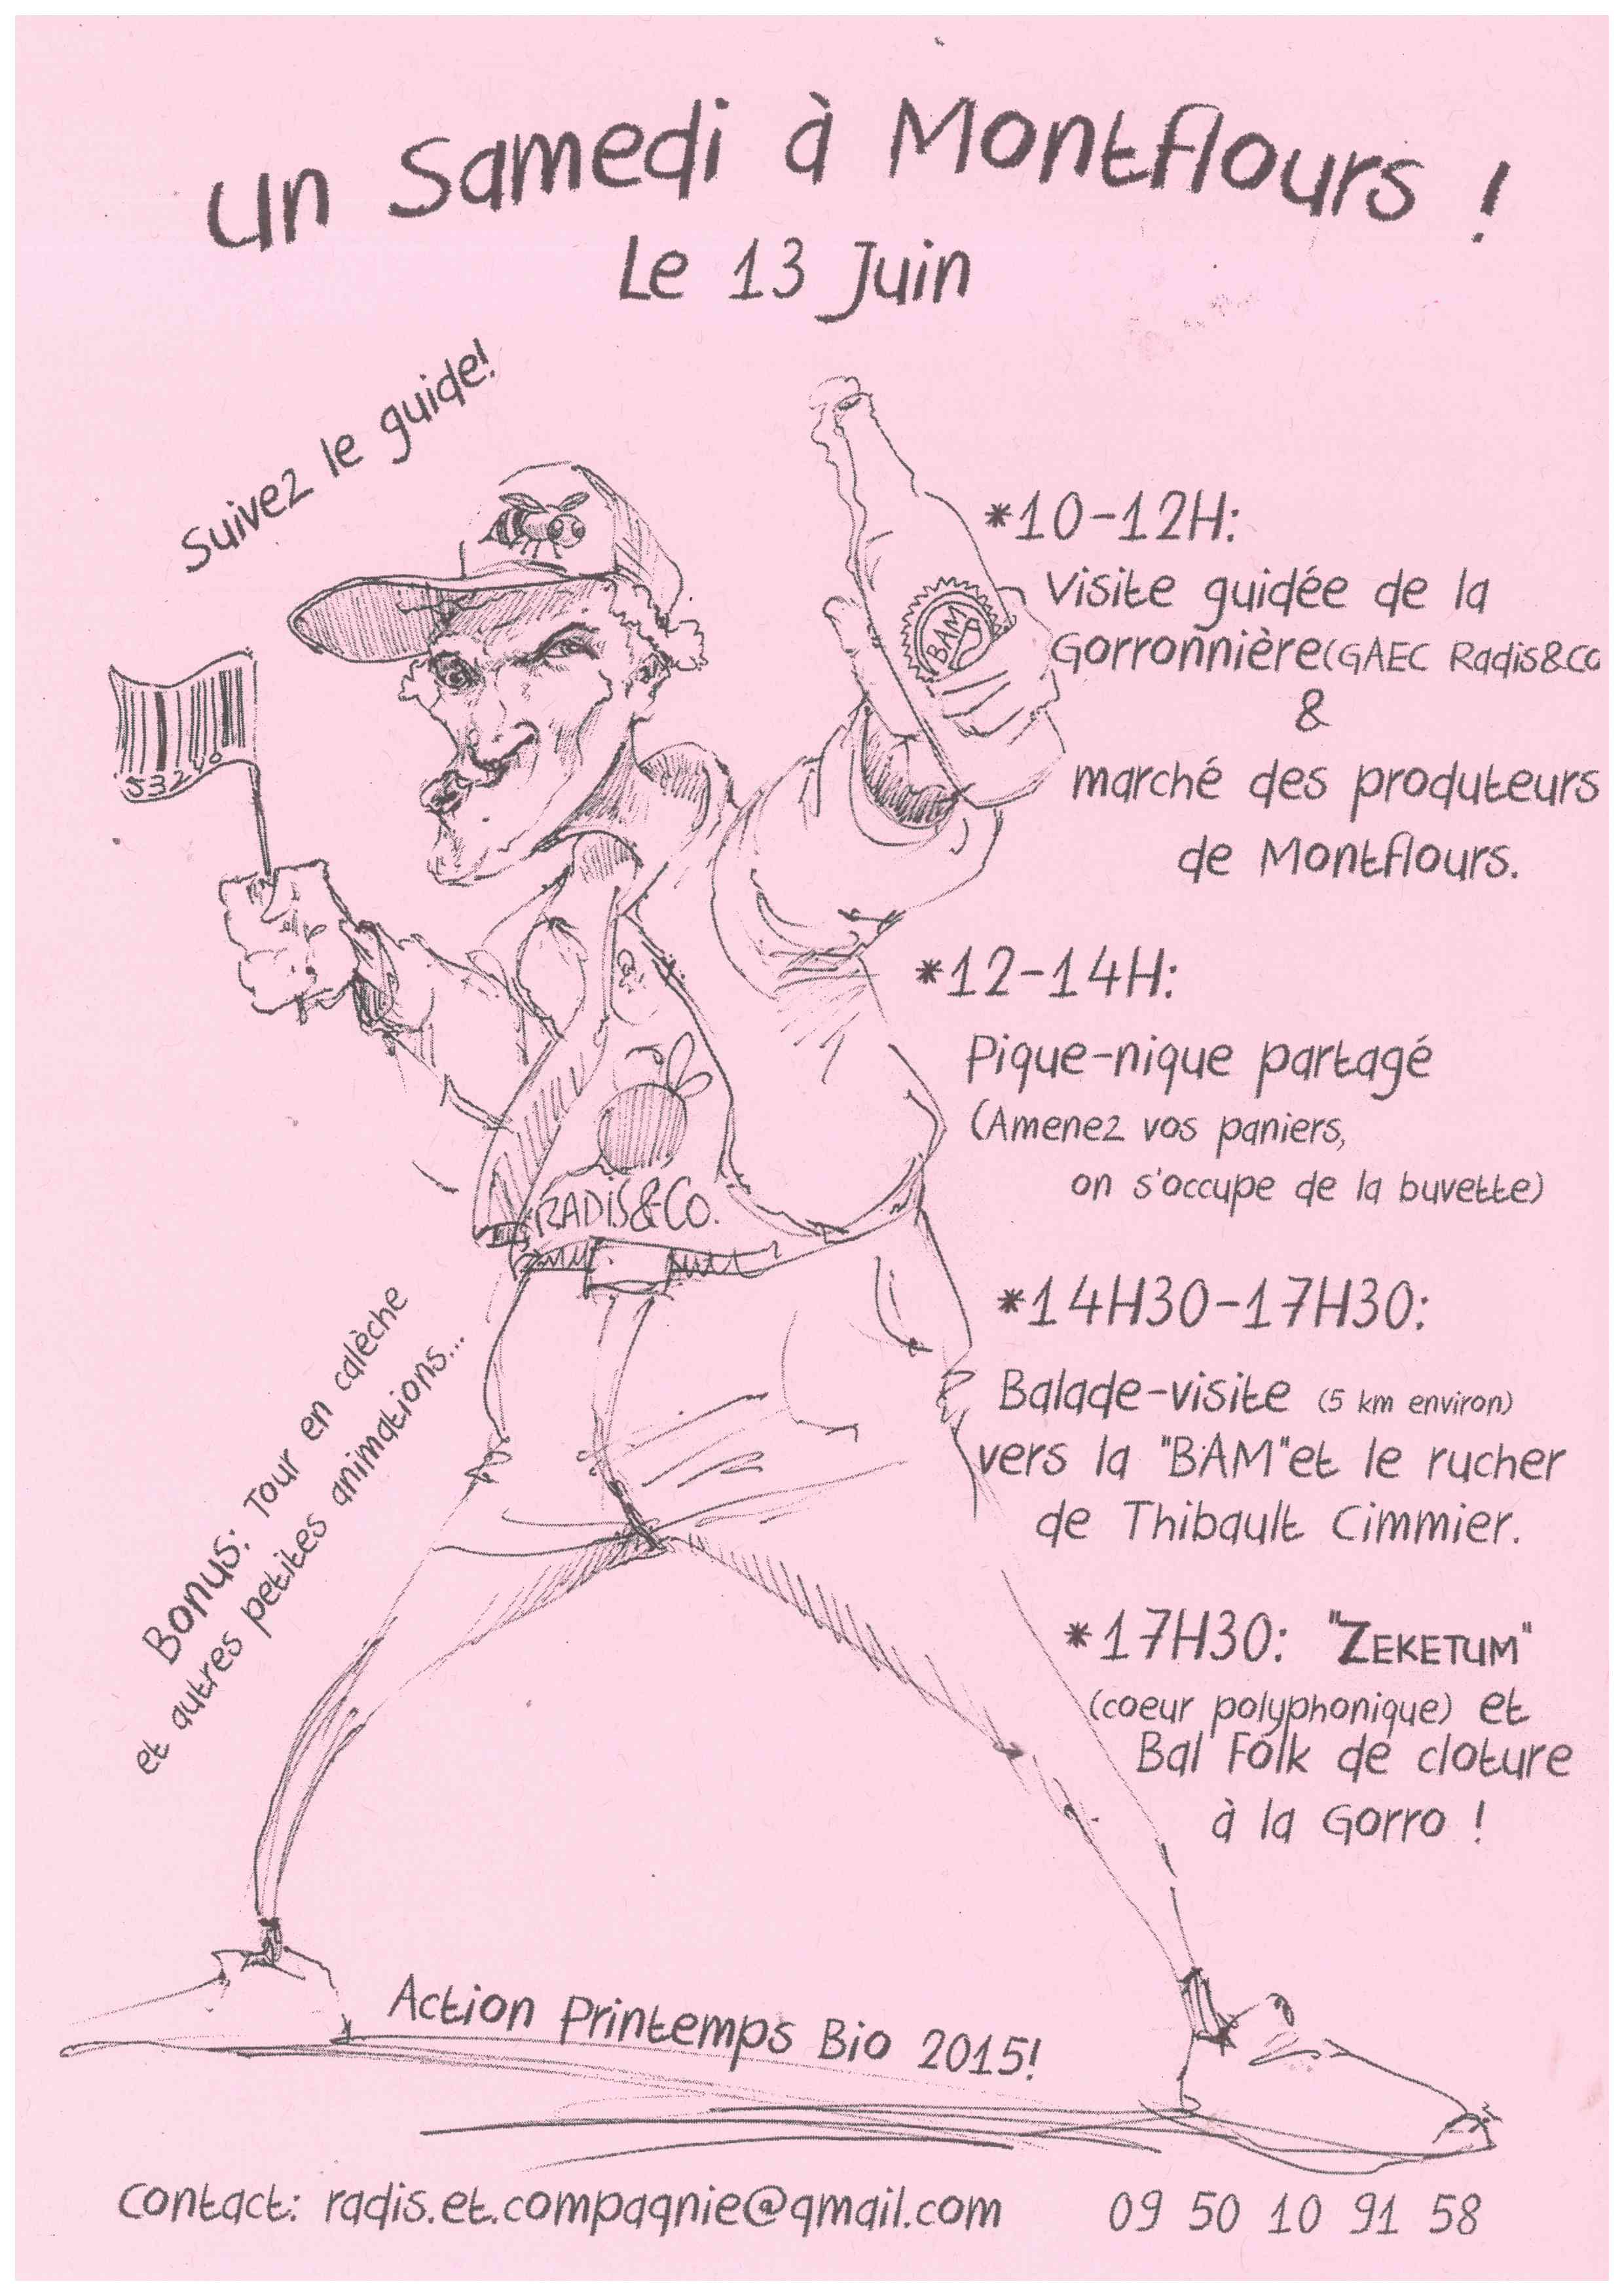 Un Samedi à Montflours !
Le 13 Juin
Suivez le guide!
*10-12H:
Visite guidée de la
Gorronnière(GAEC Radis&Co
&
marché des produteurs
de Montflours.
BAM
53240
*12-14H:
Pique-nique partagé
(Amenez vos paniers,
on s'occupe de la buvette)
RADIS&CO.
*14H30-17H30:
Balade-visite (5 km environ)
vers la "BAM"et le rucher
de Thibault Cimmier.
Bonus: Tour en calèche
et autres petites animations...
*17H30: "ZEKETUM"
(coeur polyphonique) et
Bal Folk de cloture
à la Gorro !
Action Printemps Bio 2015!
Contact: radis.et.compagnie@gmail.com 09 50 10 91 58